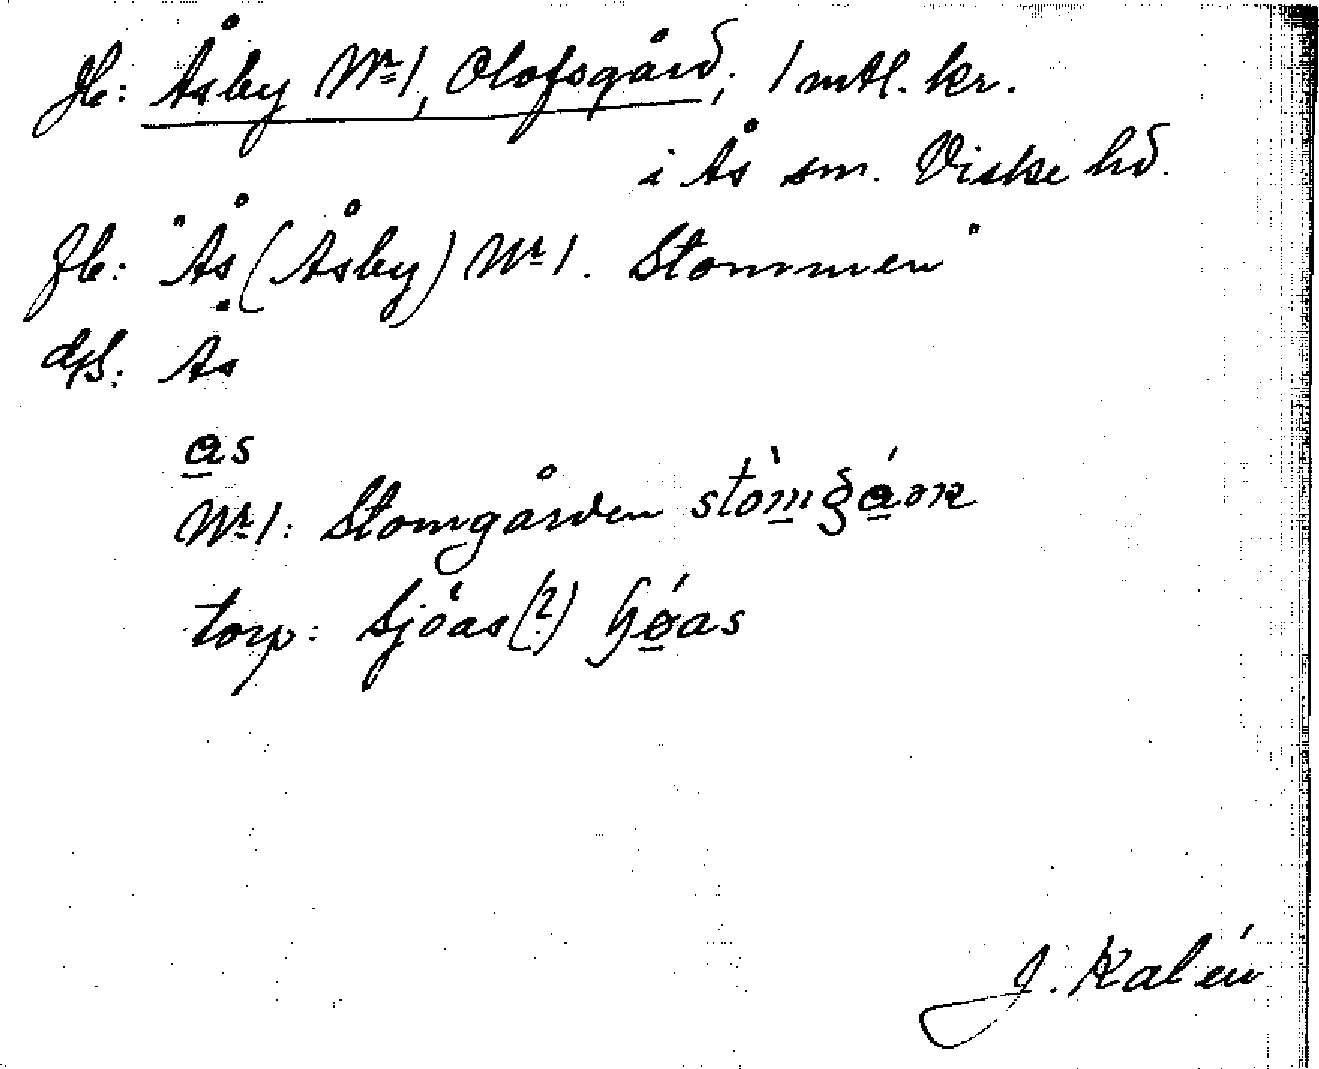 Jb: Åsby Nr 1, Olofsgård; 1 mtl. kr.
i Ås sn. Viske hd.
Jb: "Ås (Åsby) Nr 1. Stommen"
dpl: Ås
as
Nr 1: Stomgården
torp: Sjöas(?)
J. Kalén